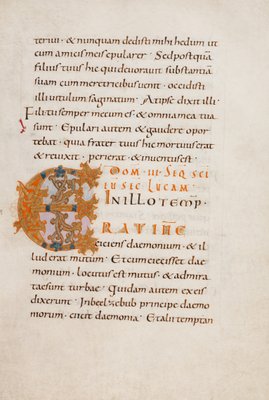 teriui · & nunquam dedisti mihi hedum ut
cum amicis meis epularer · Sed postquā
filius tuus hic qui deuorauit substantiā
suam cum meretricibus uenit · occidisti
illi uitulum saginatum · At ipse dixit illi ·
Fili tu semper mecum es · & omnia mea tua
sunt · Epulari autem & gaudere opor
tebat · quia frater tuus hic mortuus erat
& reuixit · perierat · & inuentus est ·
DOM · III · SEQ SCI
EU SEC LUCAM
IN ILLO TEMP
ERAT IHC
eiciens daemonium · & il
lud erat mutum · Et cum eiecisset dae
monium · locutus est mutus · & admira
tae sunt turbae · Quidam autem ex eis
dixerunt · In beelzebub principe daemo
niorum · eicit daemonia · Et alii temptan